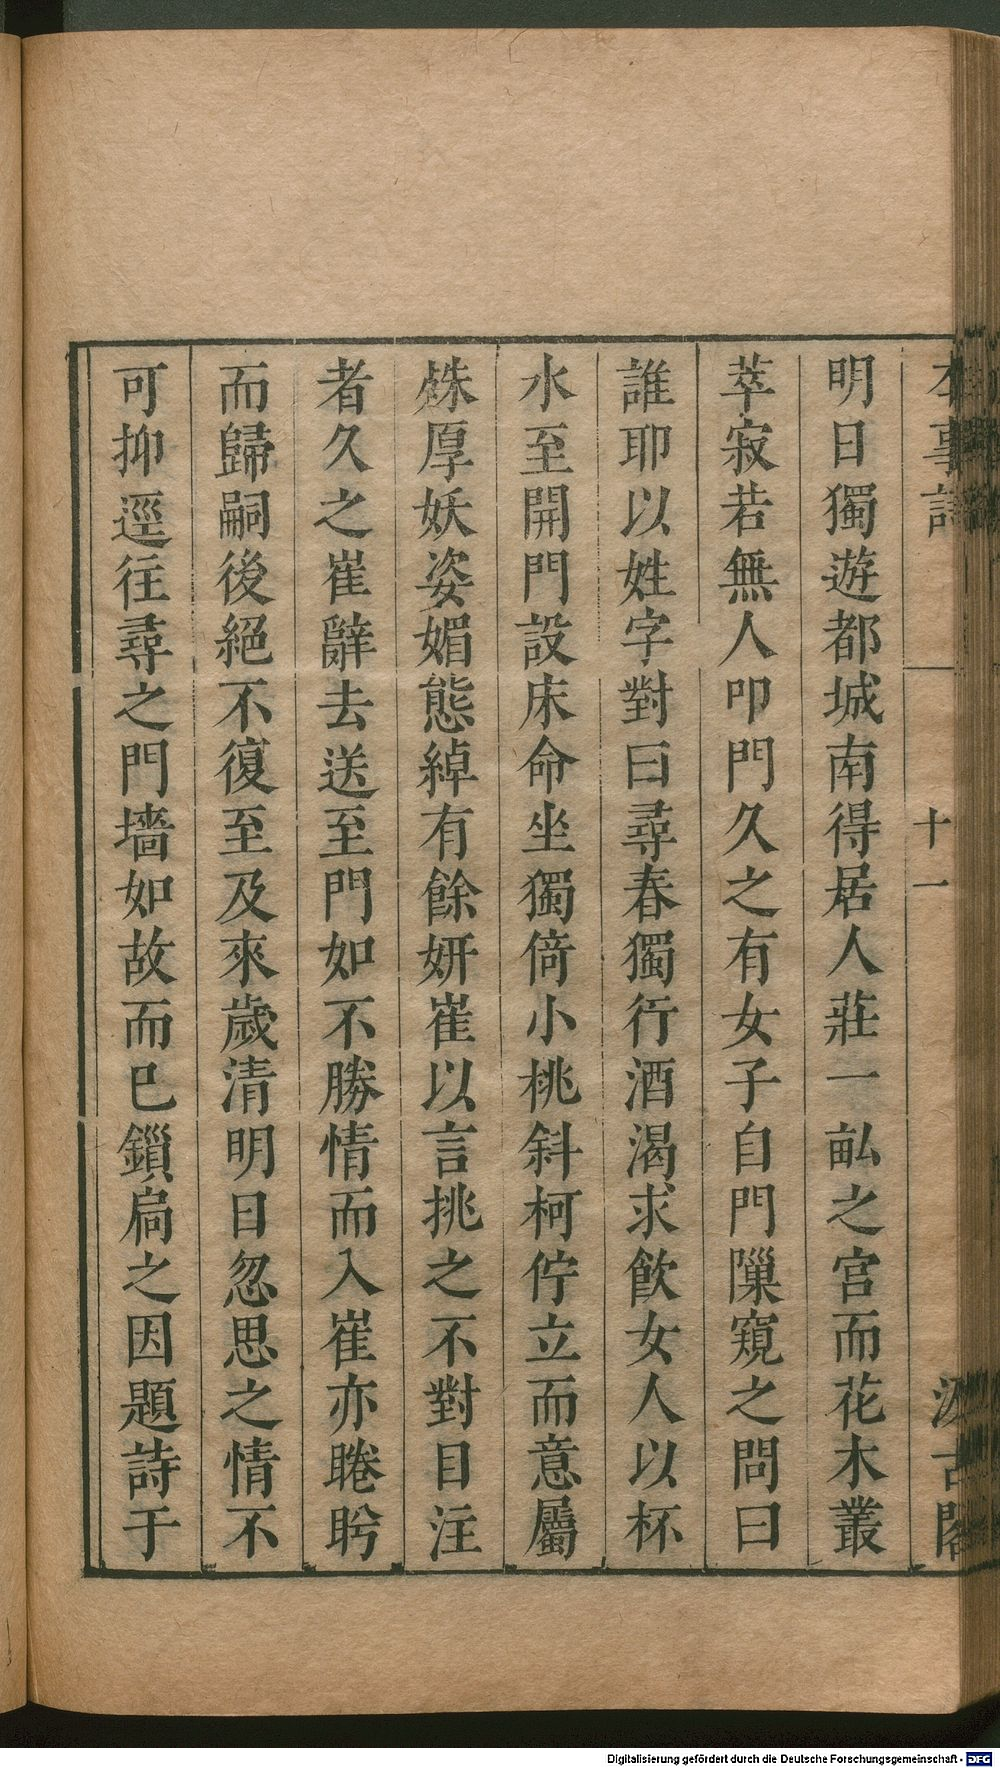 本事詩 十一 汲古閣
明日獨遊都城南得居人莊一畝之宫而花木叢
萃寂若無人叩門久之有女子自門隟窺之問曰
誰耶以姓字對曰尋春獨行酒渴求飮女人以杯
水至開門設床命坐獨倚小桃斜柯佇立而意屬
殊厚妖姿媚態綽有餘妍崔以言挑之不對目注
者久之崔辭去送至門如不勝情而入崔亦睠盻
而歸嗣後絕不復至及來歲清明日忽思之情不
可抑逕往尋之門墻如故而已鎻扃之因題詩于
Digitalisierung gefördert durch die Deutsche Forschungsgemeinschaft - DFG